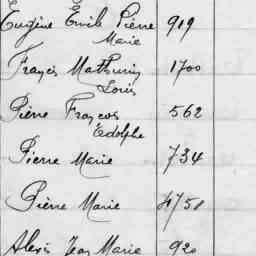 Eugène Emile Pierre 909
Marie
Francis Mathurin 1700
Louis
Pierre François 562
Adolphe
Pierre Marie 734
Pierre Marie 4751
Alexis Jean Marie 920